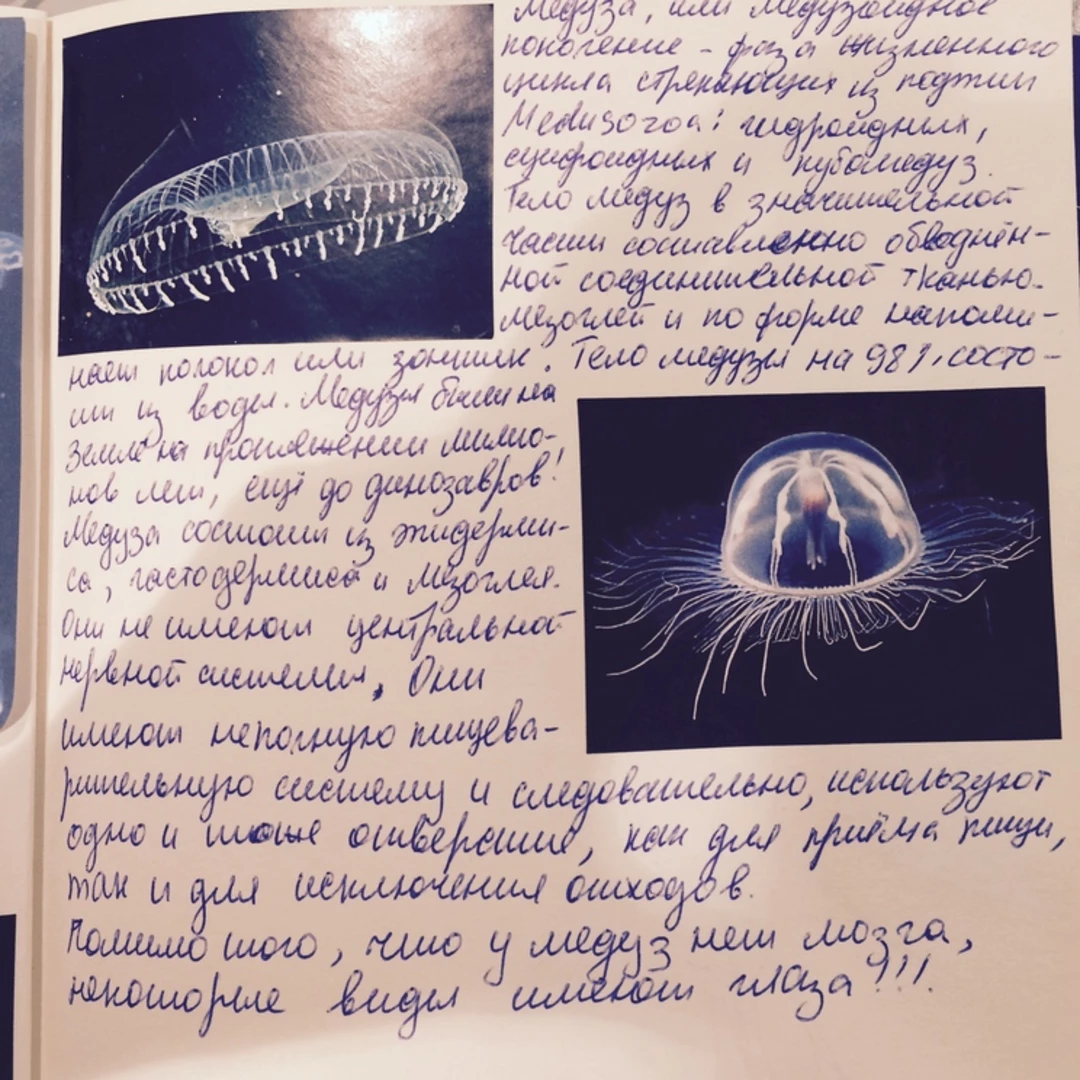 Медуза, или медузоидное
поколение - фаза жизненного
цикла стрекающих из подтип
Medusozoa: гидроидных,
сцифоидных и кубомедуз.
Тело медуз в значительной
части составленно обводнён-
ной соединительной тканью-
мезоглей и по форме напоми-
нает колокол или зонтик. Тело медузы на 98%, состо-
ит из воды. Медузы были на
Земле на протяжении милио-
нов лет, ещё до динозавров!
Медуза состоит из эпидерми-
са, гастодермиса и мезоглея.
Они не имеют центральной
нервной системы, Они
имеют неполную пищева-
рительную систему и следовательно, используют
одно и тоже отверстие, как для приёма пищи,
так и для исключения отходов.
Помимо того, что у медуз нет мозга,
некоторые виды имеют глаза!!!.